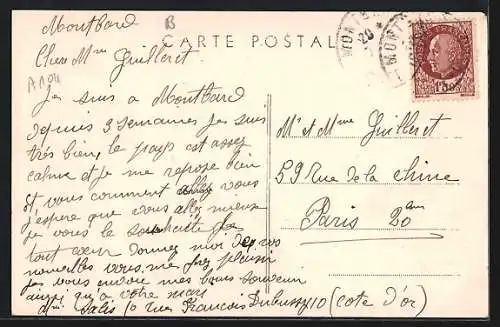 Montbard
B
Chere Mme Guilleret
CARTE POSTALE
A104
Je suis a Montbard
depuis 3 semaines je suis
très bien, le pays est assez
calme et je me repose bien
et vous comment allez vous
j'espere que vous allez mieux
je vous le souhaite de
tout coeur donnez moi de vos
nouvelles vous me ferez plaisir
je vous envoie mes bons souvenir
ainsi qu'a votre mari
10 rue François Debussy 10 (cote d'or)
Mr et Mme Guilleret
59 Rue de la Chine
Paris 20
1F50